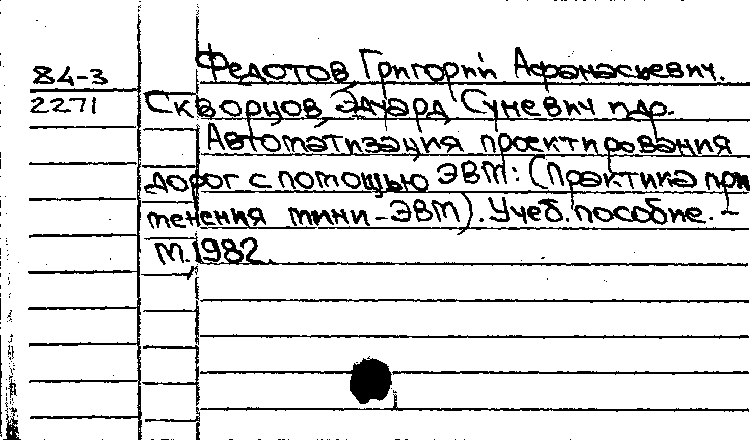 Федотов Григорий Афанасьевич.
84-3
2271 Скворцов Эдуард Сумевич и др.
Автоматизация проектирования
дорог с помощью ЭВМ: (Практика при
менения мини-ЭВМ). Учеб. пособие. -
М. 1982.